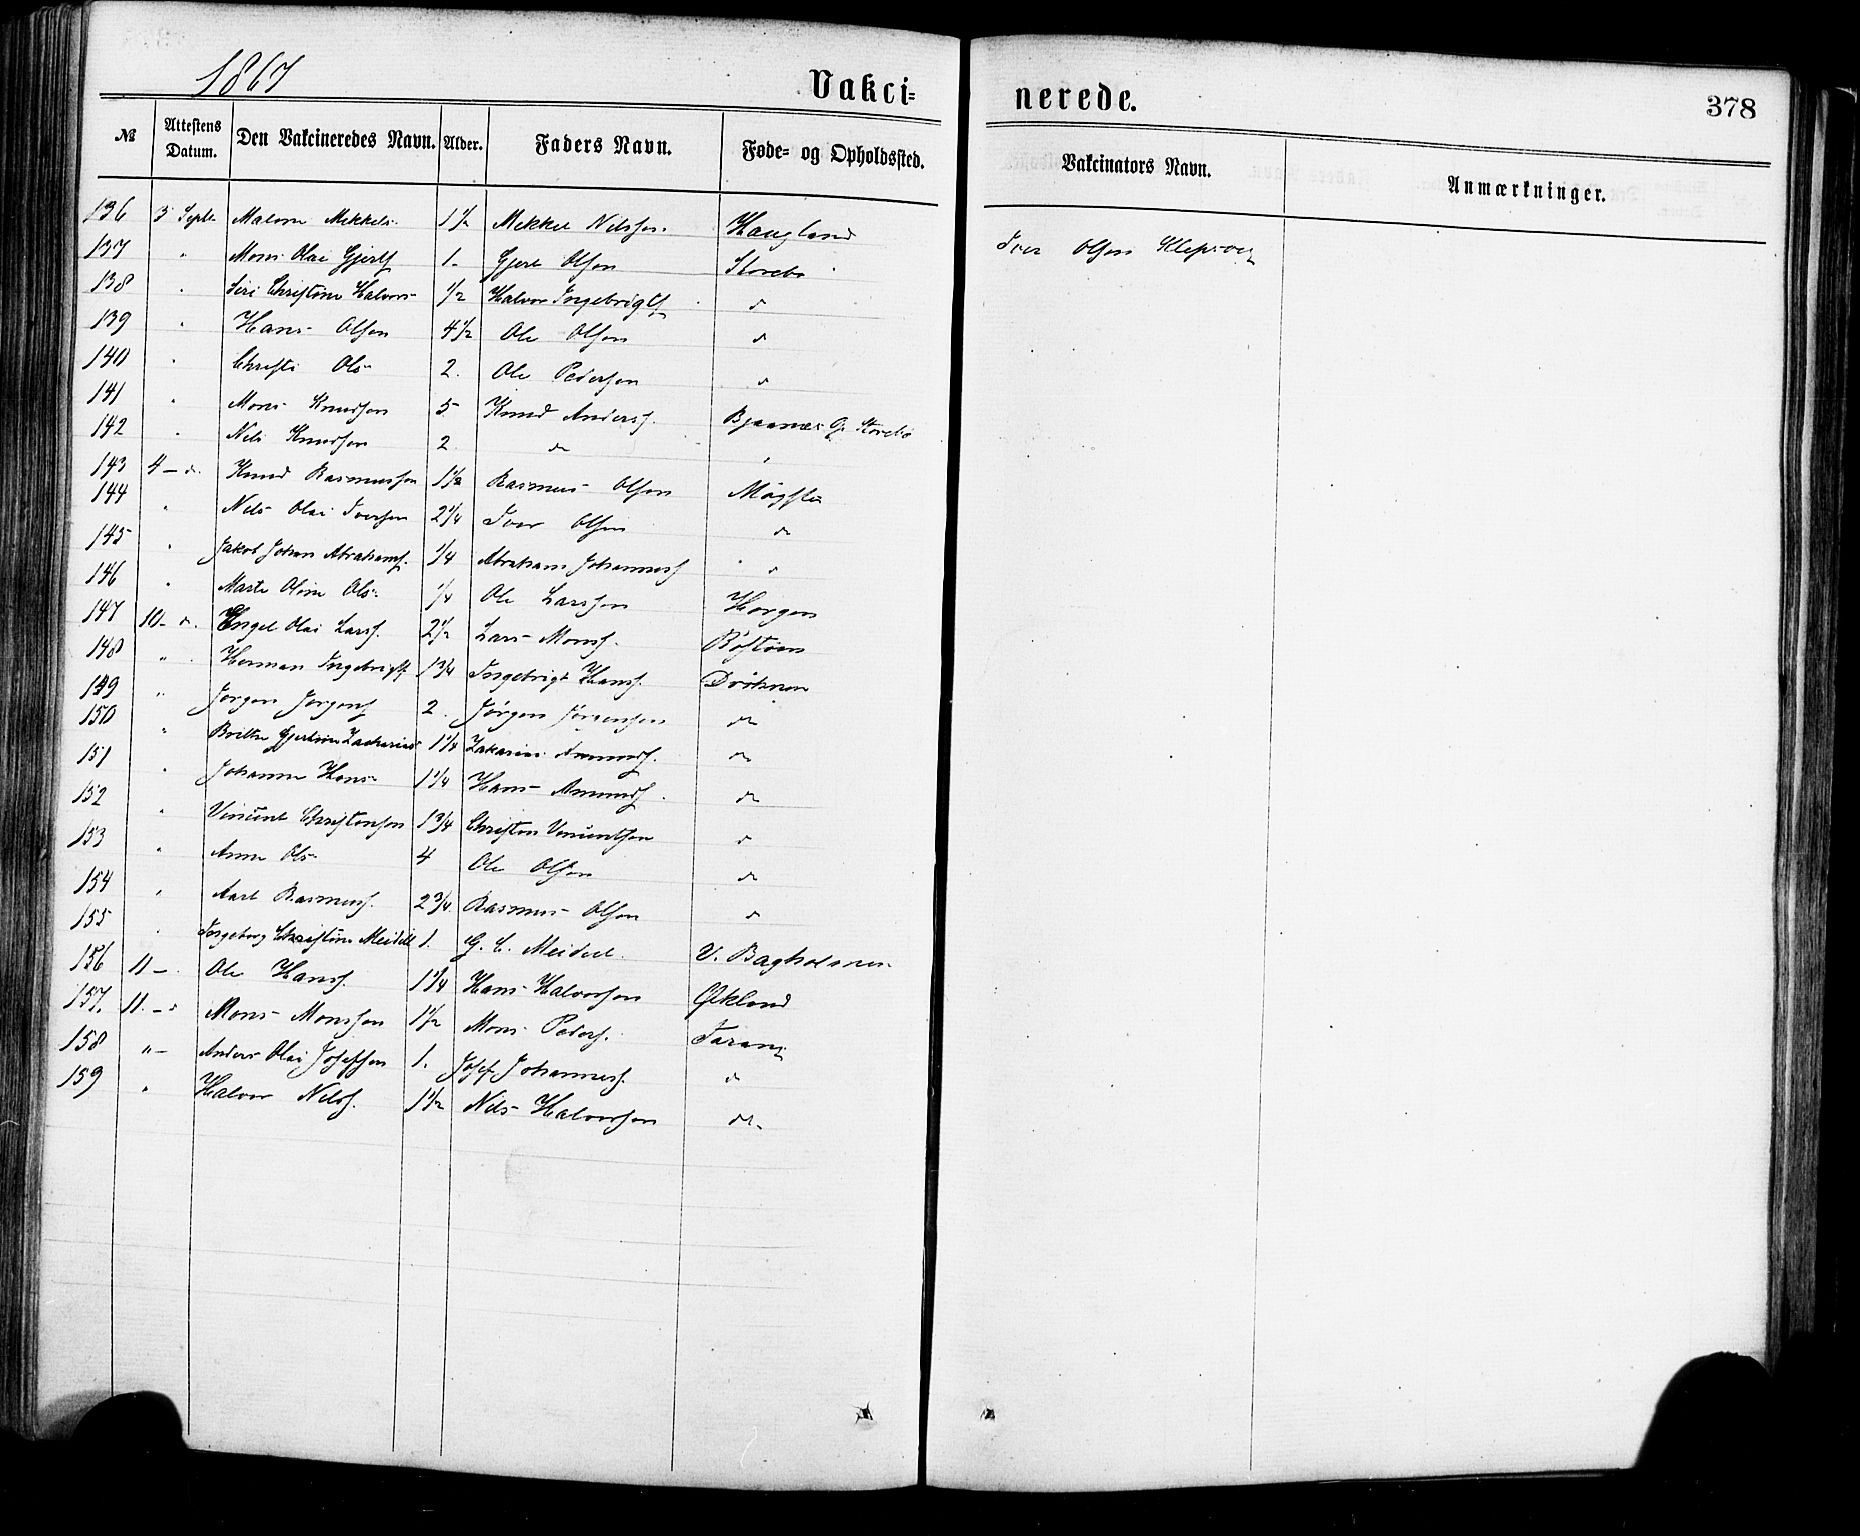 1867
Vakci=
nerede.
378
№ Attestens Datum. Den Vakcineredes Navn. Alder. Faders Navn. Føde= og Opholdssted. Vakcinators Navn. Anmærkninger.
136 3 Septbr Malene Mikkels- 1½ Mikkel Nilssen. Haugland Iver Olsen Klepsvig
137 " Mons Olai Gjertss 1- Gjert Olsen Storebø
138 " Siri Christine Halvors- ½ Halvor Ingebrigts d
139 " Hans Olsen 4½ Ole Olsen d
140 " Christi Ols- 2. Ole Pedersen d
141 " Mons Knudsen 5 Knud Anderss. Bjaanæs G. Storebø
142 " Nils Knudsen 2 do "
143 4 - d. Knud Rasmussen 1½ Rasmus Olsen Møgster
144 " Nils Olai Iversen 2¼ Iver Olsen do
145 " Jakob Johan Abrahams. ¼ Abraham Johanness " d
146 " Marte Oline Ols- ¼ Ole Larssen Horgen
147 10 - d. Engel Olai Larss. 2½ Lars Monss.
148 " Herman Ingebrigts 1¾ Ingebrigt Hanss.
149 " Jørgen Jørgens 2. Jørgen Jørgensen do
150 " Zacharias 1¼ Zakarias Amunds. do
151 " Johanne Hans- 1¼ Hans Amunds. do
152 " Vincent Christensen 1¾ Christen Vincentsen d
153 " Anna Ols- 4 Ole Olsen do
154 " Rasmuss. 2¾ Rasmus Olsen d
155 " Ingeborg Christine Meidell 1. G. C. Meidell. V. Bagholmen
156 11 - Ole Hanss. 1¼ Hans Halvorsen Økland
157. 11. - d Mons Monssen 1½ Mons Peders.
158 " - Anders Olai Josefsen 1. Josef Johanness. d
159 " Halvor Nilss. 1½ Nils Halvorsen do.